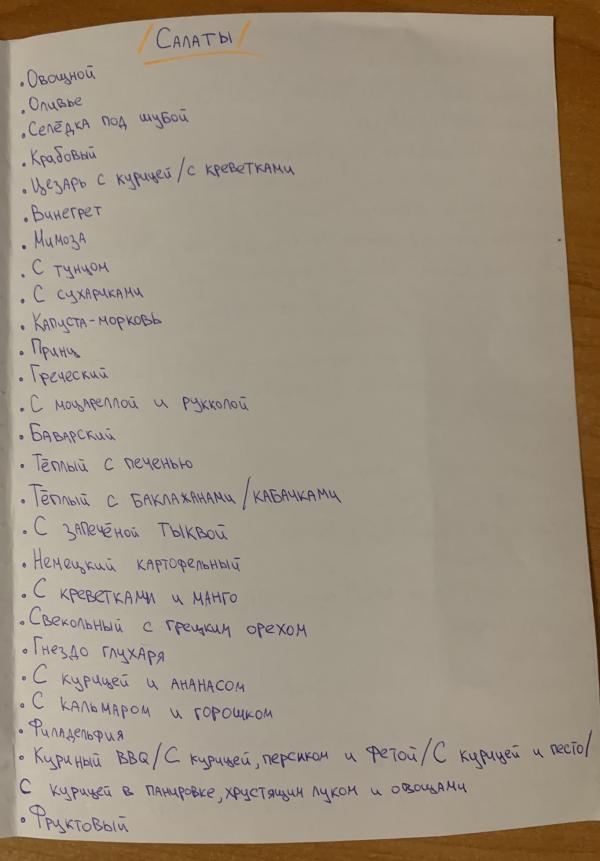 / Салаты /
• Овощной
• Оливье
• Селёдка под шубой
• Крабовый
• Цезарь с курицей/с креветками
• Винегрет
• Мимоза
• С тунцом
• С сухариками
• Капуста-морковь
• Принц
• Греческий
• С моцареллой и рукколой
• Баварский
• Тёплый с печенью
• Тёплый с баклажанами/кабачками
• С запечёной тыквой
• Немецкий картофельный
• С креветками и манго
• Свекольный с грецким орехом
• Гнездо глухаря
• С курицей и ананасом
• С кальмаром и горошком
• Филадельфия
• Куриный BBQ/С курицей, персиком и фетой/С курицей и песто/
С курицей в панировке, хрустящим луком и овощами
• Фруктовый